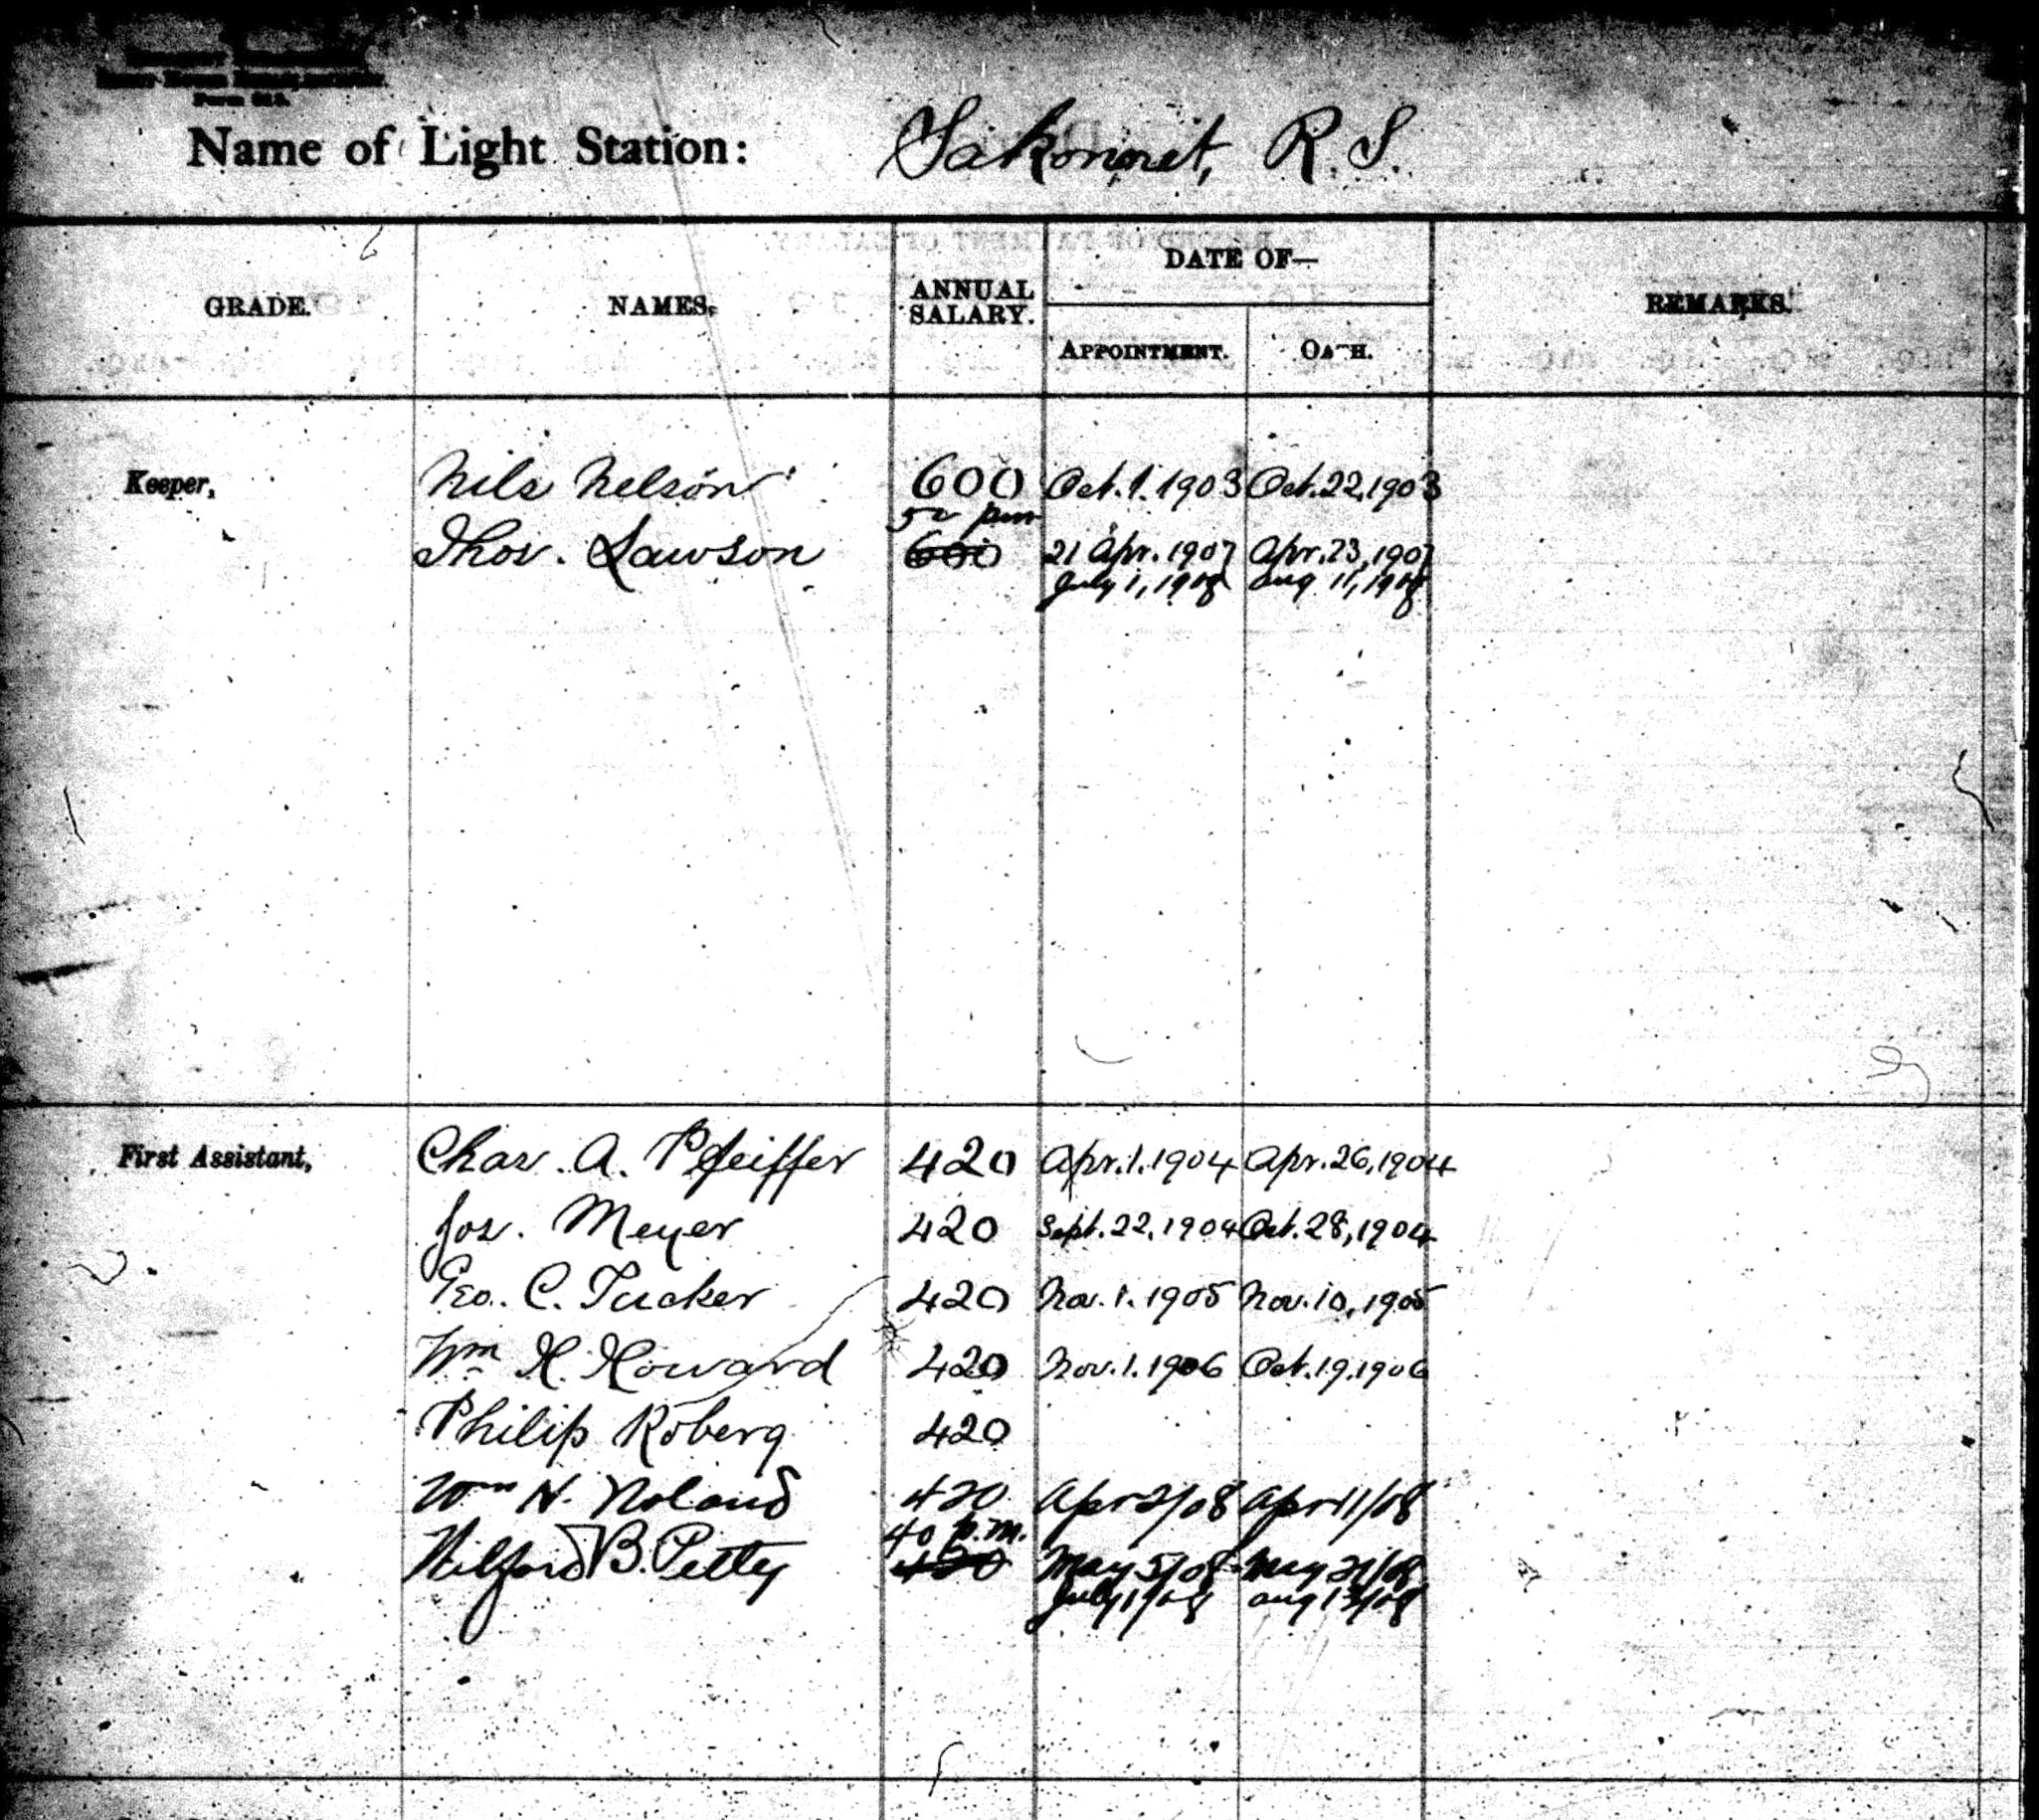 Form 313.
Name of Light Station: Sakonnet, R.I.
GRADE. NAMES. ANNUAL SALARY. DATE OF— REMARKS.
APPOINTMENT. OATH.
Keeper, Nils Nelson 600 Oct. 1. 1903 Oct. 22, 1903
50 pm
Thos. Lawson 600 21 Apr. 1907 Apr. 23, 1907
July 1, 1908 Aug 11, 1908
First Assistant, Chas. A. Pfeiffer 420 Apr. 1. 1904 Apr. 26, 1904
Jos. Meyer 420 Sept. 22, 1904 Oct. 28, 1904
Geo. C. Tucker 420 Nov. 1. 1905 Nov. 10, 1905
Wm H. Howard 420 Nov. 1. 1906 Oct. 19. 1906
Philip Roberg 420
Wm H. Noland 420 Apr 2/08 Apr 11/08
40 p.m.
Wilford B. Petty 420 May 5/08 May 21/08
July 1/08 Aug 13/08